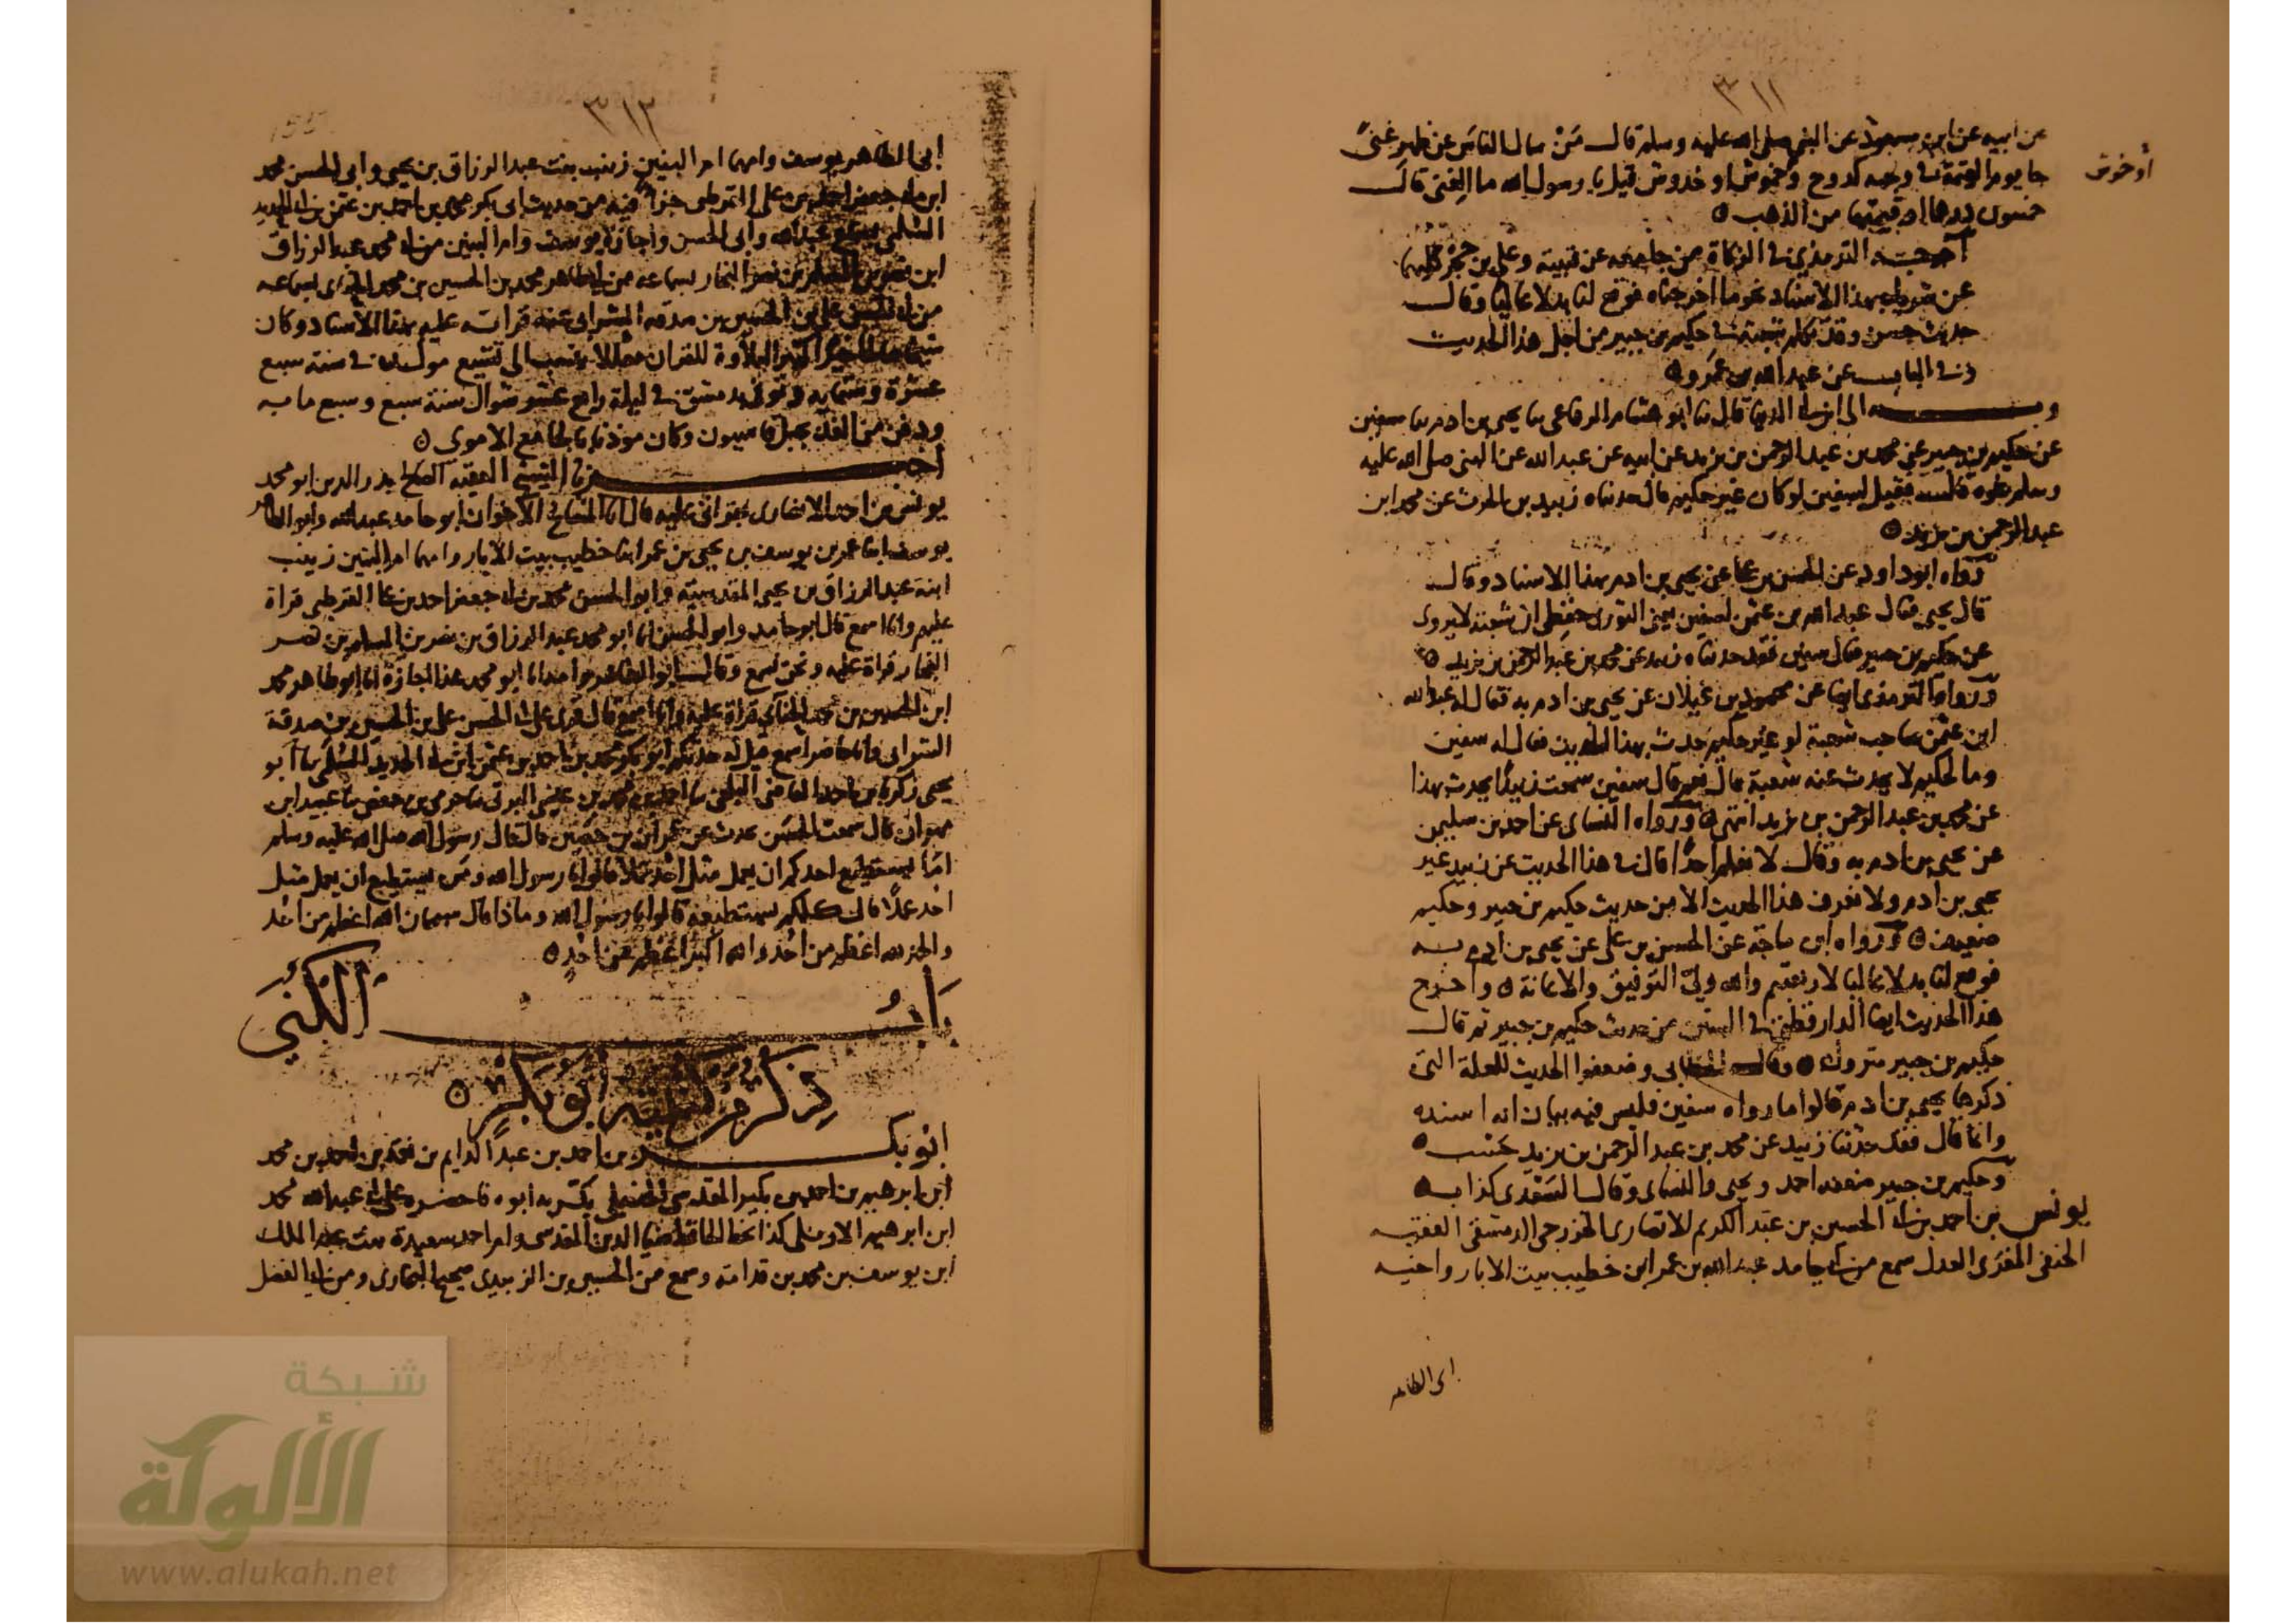 ٣١١
عن ابيه عن ابن مسعود عن النبي صلى الله عليه وسلم قال مَنْ سال الناسَ عن ظهر غنىً
أو خوش
جا يوم القيمة في وجهه كدوح وخموش او خدوش قيل يا رسول الله ما الغنى قال
خمسون درهما او قيمتها من الذهب
أخرجه الترمذي في الزكاة من جامعه عن قتيبة وعلي بن حجر كليهما
عن شريك بهذا الاسناد نحو ما اخرجناه فوقع لنا بدلا عاليا وقال
حديث حسن وقد تكلم شعبة في حكيم بن جبير من اجل هذا الحديث
وفي الباب عن عبد الله بن عمرو
وبه الى ابن ابي الدنيا قال ثنا ابو هشام الرفاعي ثنا يحيى بن ادم ثنا سفين
عن حكيم بن جبير عن محمد بن عبد الرحمن بن يزيد عن ابيه عن عبد الله عن النبي صلى الله عليه
وسلم نحوه قال فقيل لسفين لو كان غير حكيم قال حدثناه زبيد بن الحرث عن محمد ابن
عبد الرحمن بن يزيد
رواه ابو داود عن الحسن بن علي عن يحيى بن ادم بهذا الاسناد وقال
قال يحيى فقال عبد الله بن عثمن لسفين يعني الثوري حفظي ان شعبة لا يروى
عن حكيم بن جبير فقال سفين فقد حدثناه زبيد عن محمد بن عبد الرحمن بن يزيد
ورواه الترمذي ايضا عن محمود بن غيلان عن يحيى بن ادم به فقال له عبد الله
ابن عثمن صاحب شعبة لو غير حكيم حدث بهذا الحديث فقال له سفين
وما لحكيم لا يحدث عنه شعبة قال نعم قال سفين سمعت زبيدًا يحدث بهذا
عن محمد بن عبد الرحمن بن يزيد انتهى ورواه النساى عن احمد بن سليمن
عن يحيى بن ادم به وقال لا نعلم احدًا قال في هذا الحديث عن زبيد غير
يحيى بن ادم ولا نعرف هذا الحديث الا من حديث حكيم بن جبير وحكيم
ضعيف ورواه ابن ماجة عن الحسن بن على عن يحيى بن ادم به
فوقع لنا بدلا عاليا لاربعتهم والله ولي التوفيق والاعانة واخرج
هذا الحديث ايضا الدارقطني في السنن من حديث حكيم بن جبير ثم قال
حكيم بن جبير متروك وقال الخطابي وضعفوا الحديث للعلة التى
ذكرها يحيى بن ادم قالوا ما رواه سفين فليس فيه بيان انه اسنده
وانما قال فقد حدثنا زبيد عن محمد بن عبد الرحمن بن يزيد حسب
وحكيم بن جبير ضعفه احمد ويحيى والنساى وقال السعدى كذاب
يونس بن احمد بن ابي الحسين بن عبد الكريم الانصارى الخزرجى الدمشقى الفقيه
الحنفى المقرى العدل سمع من ابي حامد عبد الله بن عمر ابن خطيب بيت الابار واخيه
ابى الطاهر
٣١٢
ابى الطاهر يوسف وامهما ام البنين زينب بنت عبد الرزاق بن يحيى وابى الحسن محمد
ابن ابي جعفر احمد بن على القرطبى جزا فيه من حديث ابى بكر محمد بن احمد بن عثمن بن ابي الحديد
السلمى سمع عبد الله وابى الحسن واجازة يوسف وام البنين من ابي محمد عبد الرزاق
ابن نصر بن المسلم بن نصر النجار بسماعه من ابي طاهر محمد بن الحسين بن محمد الحنائى بسماعه
من ابي الحسن على بن الحسين بن صدقه الشرابى عنه قراته عليه بهذا الاسناد وكان
شيخا صالحا خيرا كثير التلاوة للقران عدلا ينسب الى تشيع مولده في سنة سبع
عشرة وستمايه وتوفى بدمشق في ليلة رابع عشر شوال سنة سبع وسبع مايه
ودفن من الغد بجبل قاسيون وكان موذنا بالجامع الاموى
أخبرنا الشيخ الفقيه الصالح بدر الدين ابو محمد
يونس بن احمد الانصارى بقراتى عليه قال انا المشايخ الاخوان ابو حامد عبد الله وابو الطاهر
يوسف ابنا عمر بن يوسف بن يحيى بن عمر ابنا خطيب بيت الابار وامهما ام البنين زينب
ابنة عبد الرزاق بن يحيى المقدسية وابو الحسن محمد بن ابي جعفر احمد بن على القرطبى قراة
عليهم وانا اسمع قال ابو حامد وابو الحسن انا ابو محمد عبد الرزاق بن نصر بن المسلم بن نصر
النجار قراة عليه ونحن نسمع وقال ابو الطاهر وامه انا ابو محمد هذا اجازة انا ابو طاهر محمد
ابن الحسين بن محمد الحنائي قراة عليه وانا اسمع قال قرى على ابي الحسن على بن الحسين بن صدقة
الشرابى وانا حاضر اسمع قيل له حدثكم ابو بكر محمد بن احمد بن عثمن ابن ابي الحديد السلمى ثنا أبو
يحيى زكريا بن احمد القاضى البلخى ثنا احمد بن محمد بن عيسى البرتى ثنا حرمي بن حفص ثنا عبيد ابن
مهران قال سمعت الحسن يحدث عن عمران بن حصين قال قال رسول الله صلى الله عليه وسلم
امَا يستطيع احدكم ان يعمل مثل احُد عملًا قالوا يا رسول الله ومَن يستطيع ان يعمل مثل
احُد عملًا قال كلكم يستطيعه قالوا يا رسول الله وماذا قال سبحان الله اعظم من احُد
والحمد لله اعظم من احُد والله اكبر اعظم من احُدٍ
بَابُ الكُنَى
ذِكْرُ مَنْ كُنيته أَبُو بَكْرٍ
ابُو بكر بن احمد بن عبد الدايم بن نعمة بن احمد بن محمد
ابن ابرهيم بن احمد بن بكير المقدسى الحنبلى بكّر به ابوه فاحضره على ابي عبد الله محمد
ابن ابرهيم الاربلى كذا بخط الحافظ ضيا الدين المقدسى وام احمد سعيدة بنت عبد الملك
ابن يوسف بن محمد بن قدامة وسمع من الحسين بن الزبيدى صحيح البخارى ومن ابي الفضل
شبكة
الألوكة
www.alukah.net